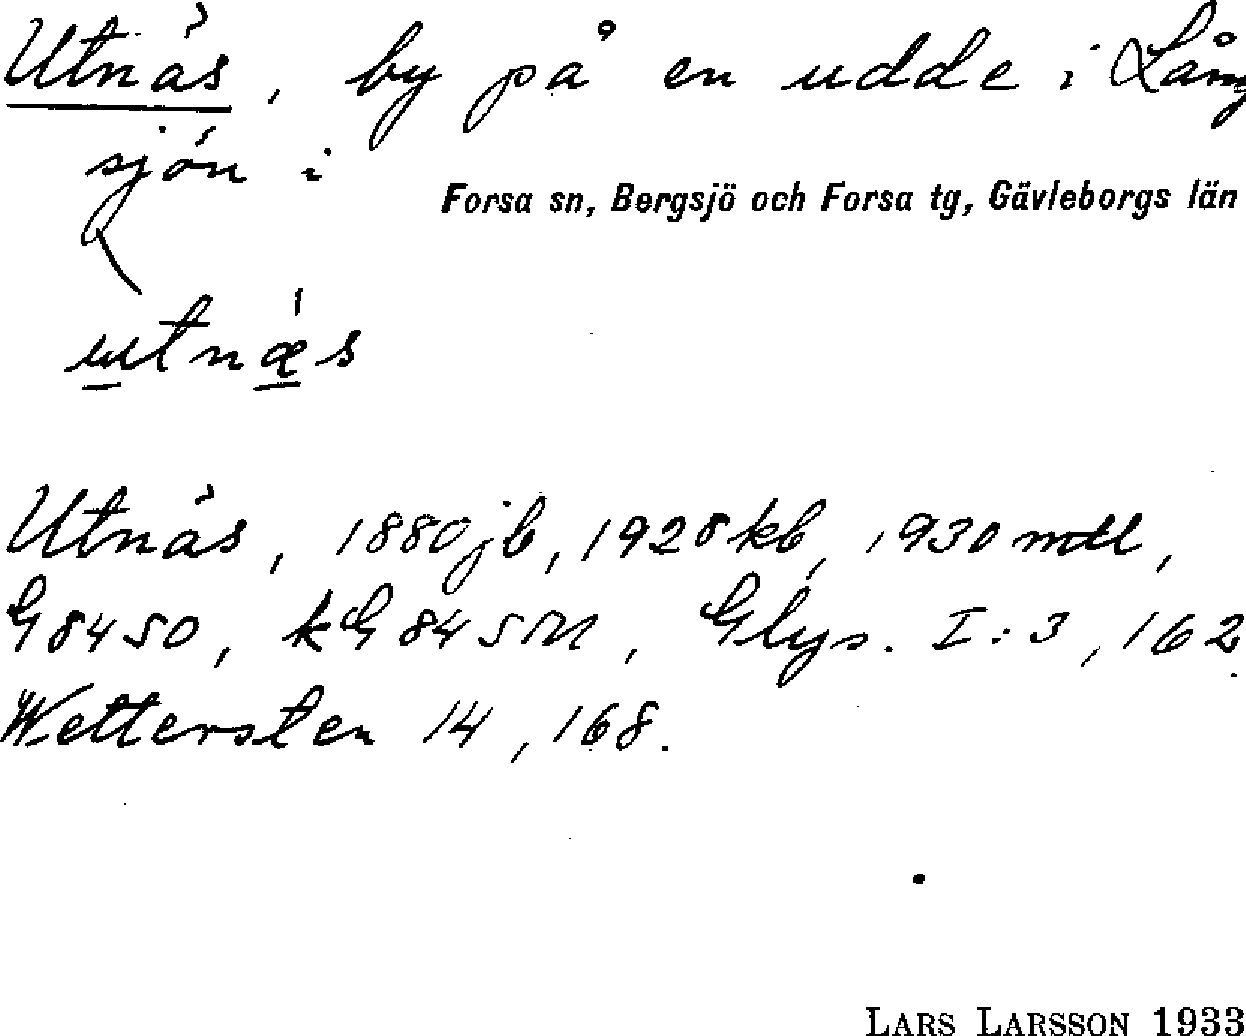 Utnäs, by på en udde i Lång
sjön i
Forsa sn, Bergsjö och Forsa tg, Gävleborgs län
utnæs
Utnäs, 1880 jb, 1928 kb, 1930 mtl,
G 8450, kG 845 M, Glys. I:3, 162.
Wettersten 14, 168.
LARS LARSSON 1933